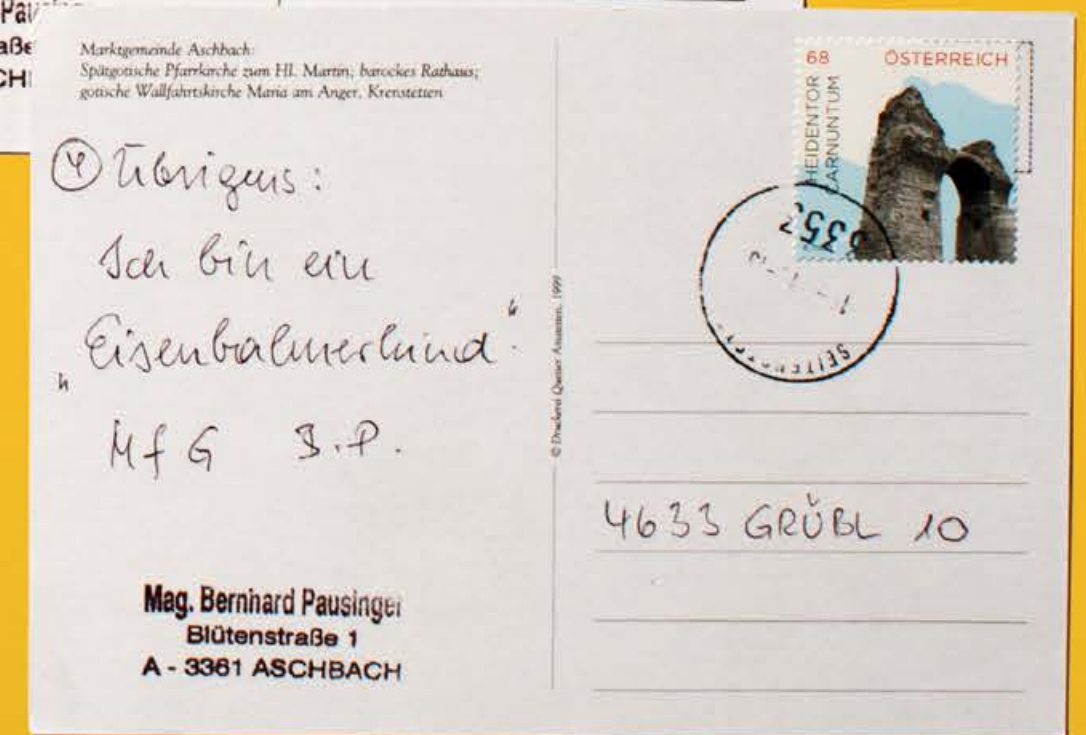 Marktgemeinde Aschbach:
Spätgotische Pfarrkirche zum Hl. Martin; barockes Rathaus;
gotische Wallfahrtskirche Maria am Anger, Krenstetten
④ Übrigens:
Ich bin ein
„Eisenbahnerkind“.
MfG B.P.
Mag. Bernhard Pausinger
Blütenstraße 1
A - 3361 ASCHBACH
© Druckerei Queiser Amstetten, 1999
68 ÖSTERREICH
HEIDENTOR
CARNUNTUM
3353
4633 GRÜBL 10